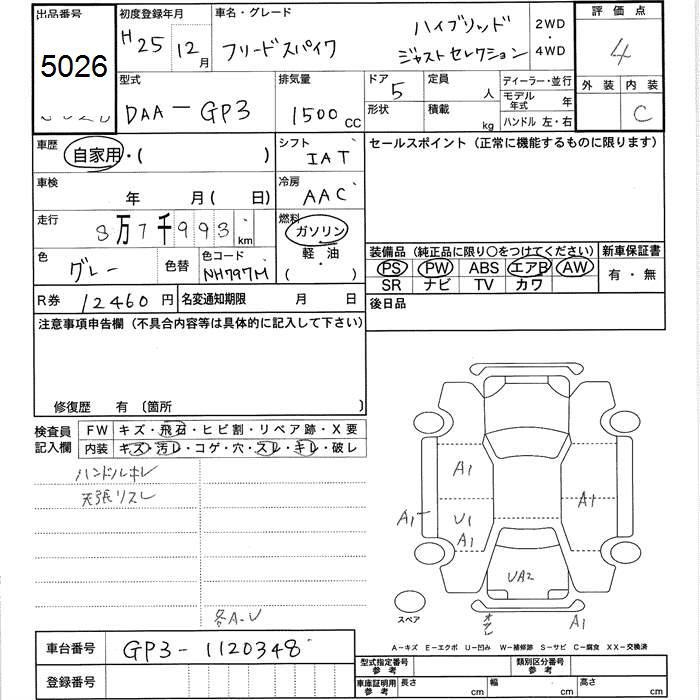 出品番号 初度登録年月 車名・グレード 評価点
5026 H25 12月 フリードスパイク ハイブリッド ジャストセレクション 2WD・4WD 4
型式 排気量 ドア 定員 ディーラー・並行 外装 内装
DAA-GP3 1500CC 5 人 モデル年式 年 C
形状 積載 kg ハンドル 左・右
車歴 自家用・( ) シフト IAT セールスポイント (正常に機能するものに限ります)
車検 年 月( 日) 冷房 AAC
走行 8万7千993km 燃料 ガソリン
軽・油
( )
色 グレー 色替 色コード NH797M
装備品 (純正品に限り○をつけてください) 新車保証書
PS PW ABS エアB AW 有・無
SR ナビ TV カワ
R券 12460円 名変通知期限 月 日 後日品
注意事項申告欄 (不具合内容等は具体的に記入して下さい)
修復歴 有 〔箇所 〕
検査員記入欄 FW キズ・飛石・ヒビ割・リペア跡・X要
内装 キズ・汚レ・コゲ・穴・スレ・キレ・破レ
ハンドルキレ
天張リスレ
各A・U
A1
U1
A1
A1
A1
UA2
A1
スペア
A-キズ E-エクボ U-凹み W-補修跡 S-サビ C-腐食 XX-交換済
車台番号 GP3-1120348
登録番号
型式指定番号 参考 類別区分番号 参考
車庫証明用 参考 長さ cm 幅 cm 高さ cm